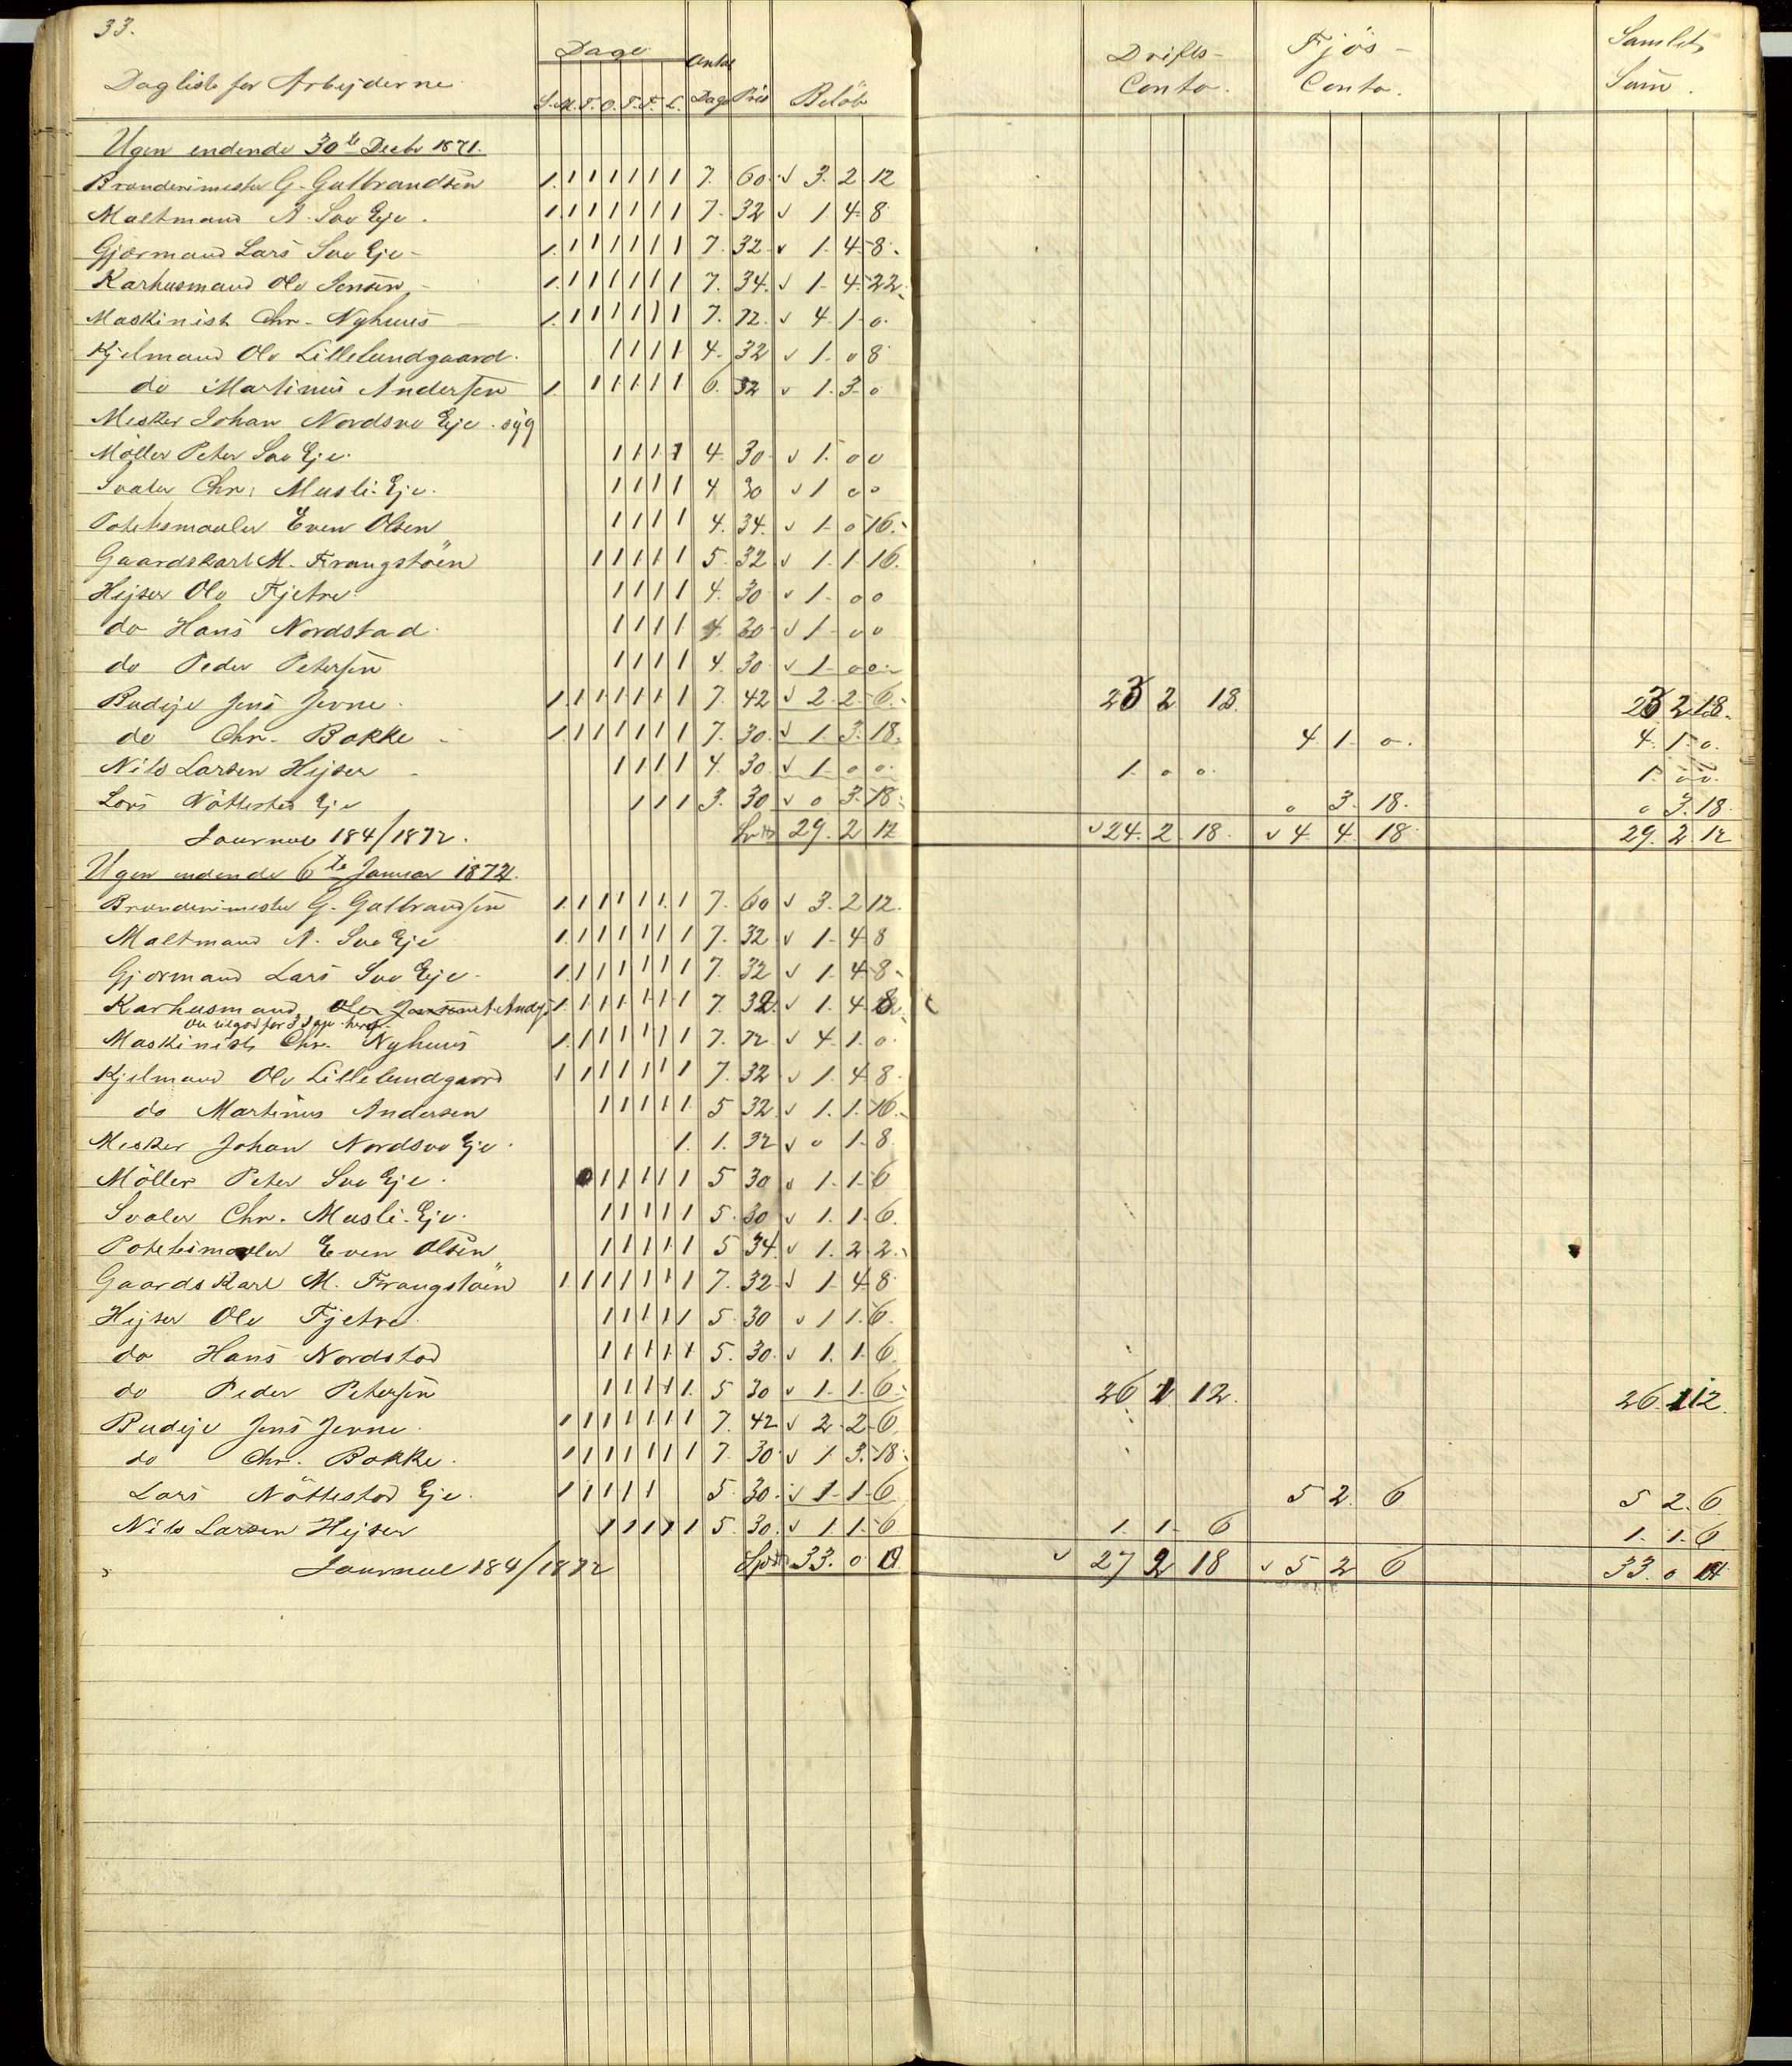 33.
Dagliste for Arbejderne Dage Antal Dage Pris Beløb Drifts- Conto. Fjøs- Conto. Samlet Sum.
S. M. T. O. T. F. L.
Ugen endende 30te Decbr 1871.
Brænderimester G. Gulbrandsen 1. 1 1 1 1 1 1 7. 60. 3. 2 12
Maltmand A. Soe Eje. 1 1 1 1 1 1 1 7. 32 1. 4. 8
Gjærmand Lars Soe Eje - 1. 1 1 1 1 1 1 7. 32 1. 4. 8.
Karhusmand Ole Jensen 1. 1 1 1 1 1 1 7. 34. 1. 4. 22
Maskinist Chr. Nyhuus 1. 1 1 1 1 1 1 7. 72. 4. 1. 0.
Kjelmand Ole Lillelundgaard. 1 1 1 1 4. 32 1. 0 8
do Martinus Andersen 1. 1 1 1 1 1 6. 32 1. 3. 0
Mesker Johan Nordsve Eje. syg
Möller Peter Soe Eje. 1 1 1 1 4. 30 1. 0 0
Svaler Chr. Musli. Eje. 1 1 1 1 4 30 1 0 0
Potetesmaler Even Olsen 1 1 1 1 4. 34. 1. 0 16.
Gaardskarl M. Frangstöen 1 1 1 1 1 5. 32 1. 1. 16.
Hejser Ole Fjetre. 1 1 1 1 4. 30 1. 0 0
do Hans Nordstad. 1 1 1 1 4 30 1 0 0
do Peder Petersen 1 1 1 1 4. 30 1. 0 0
Budeje Jens Jevne. 1. 1 1 1 1 1 1 7. 42 2. 2. 6. 23 2 18. 23 2 18.
do Chr. Bakke 1. 1 1 1 1 1 1 7. 30. 1 3. 18. 4. 1. 0. 4. 1. 0.
Nils Larsen Hejser 1 1 1 1 4. 30. 1. 0 0. 1. 0 0. 1. 0 0.
Lars Nöttestad Eje 1 1 1 3. 30 0 3. 18. 0 3. 18. 0 3. 18.
Journal 184/1872. 29. 2 12 24. 2. 18. 4. 4. 18 29. 2. 12
Ugen endende 6te Januar 1872.
Brænderimester G. Gulbrandsen 1. 1 1 1 1 1. 1 7. 60 3. 2 12.
Maltmand A. Soe Eje 1. 1 1 1 1 1 1 7. 32 1. 4. 8
Gjærmand Lars Soe Eje. 1. 1 1 1 1 1 1 7. 32 1. 4. 8.
Karhusmand Ole Jensen 1. 1 1 1 1 1 1 7. 32. 1. 4. 8
Maskinist Chr. Nyhuus 1. 1 1 1 1 1 1 7. 72. 4. 1. 0.
Kjelmand Ole Lillelundgaard 1 1 1 1 1 1 1 7. 32 1. 4. 8.
do Martinus Andersen 1 1 1 1 1. 5 32. 1. 1. 16.
Mesker Johan Nordsve Eje. 1. 1. 32 0 1. 8
Möller Peter Soe Eje. 1 1 1 1 1 5 30 1. 1. 6
Svaler Chr. Musli. Eje. 1 1 1 1 1 5. 30 1. 1. 6.
Potetesmaler Even Olsen 1 1 1 1 1 5 34. 1. 2 2.
Gaardskarl M. Frangstöen 1 1 1 1 1 1 1 7. 32 1. 4. 8
Hejser Ole Fjetre. 1 1 1 1 1 5. 30 1 1. 6.
do Hans Nordstad 1 1 1 1 1 5. 30. 1. 1. 6.
do Peder Petersen 1 1 1 1 1. 5 30 1. 1. 6. 26 1 12. 26. 1 12.
Budeje Jens Jevne. 1 1 1 1 1 1 1 7. 42 2. 2. 6.
do Chr. Bakke. 1 1 1 1 1 1 1 7. 30. 1 3. 18.
Lars Nöttestad Eje. 1 1 1 1 1 5. 30. 1. 1. 6 5 2. 6 5 2. 6
Nils Larsen Hejser 1 1 1 1 1 5. 30. 1. 1. 6 1. 1. 6 1. 1. 6
Journal 184/1872 33. 0 27 2 18 5 2 6 33. 0